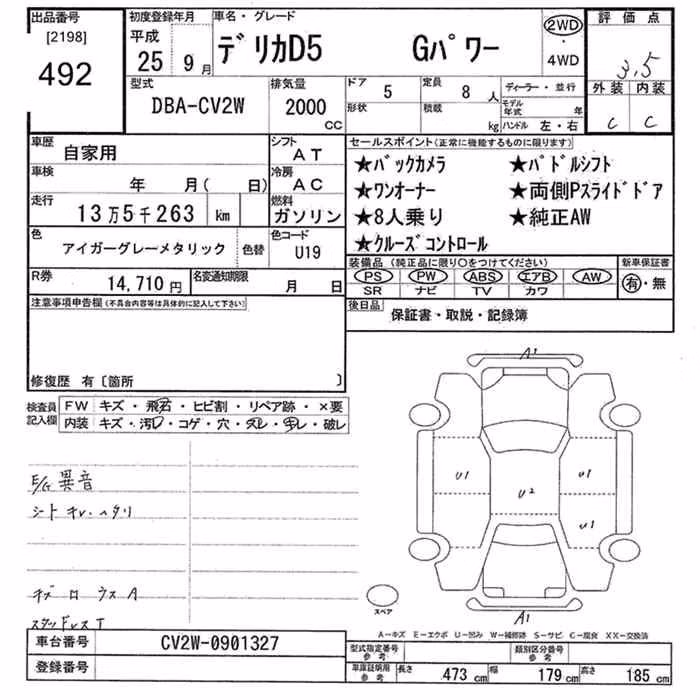 出品番号 初度登録年月 車名・グレード 評価点
[2198] 平成
492 25 9月 デリカD5 Gパワー 2WD・4WD 3.5
型式 排気量 ドア 5 定員 8人 ディーラー・並行 外装 内装
DBA-CV2W 2000cc 形状 積載 kg モデル年式 年 C C
ハンドル 左・右
車歴 自家用 シフト AT セールスポイント(正常に機能するものに限ります)
車検 年 月( 日) 冷房 AC ★バックカメラ ★パドルシフト
走行 13万5千263 km 燃料 ガソリン ★ワンオーナー ★両側Pスライドドア
★8人乗り ★純正AW
色 アイガーグレーメタリック 色替 色コード U19 ★クルーズコントロール
R券 14,710円 名変通知期限 月 日 装備品(純正品に限り○をつけてください) 新車保証書
PS PW ABS エアB AW 有・無
SR ナビ TV カワ
注意事項申告欄(不具合内容等は具体的に記入して下さい) 後日品 保証書・取説・記録簿
修復歴 有〔箇所 〕
検査員記入欄 FW キズ・飛石・ヒビ割・リペア跡・×要
内装 キズ・汚レ・コゲ・穴・スレ・キレ・破レ
A1
E/G 異音
シート キレ
U1 U2 U1
U1
A
スペア
A1
A-キズ E-エクボ U-凹み W-補修跡 S-サビ C-腐食 XX-交換済
車台番号 CV2W-0901327 型式指定番号 参考 類別区分番号 参考
登録番号 車庫証明用 参考 長さ 473cm 幅 179cm 高さ 185cm